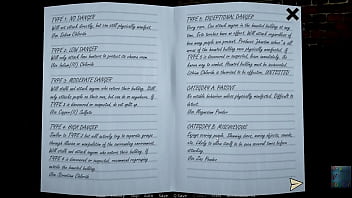 TYPE 1: NO DANGER
Will not attack, but can still physically manifest.
Use Sodium Chloride
TYPE 2: LOW DANGER
Will only attack lone hunters to protect its chosen room.
Use Sodium Chloride
TYPE 3: MODERATE DANGER
Will stalk and attack anyone who enters their building. Will
only attacks people in their room, but can do so anywhere. If
TYPE 3 is discovered or suspected, do not split up.
Use Copper(II) Sulfate
TYPE 4: HIGH DANGER
Similar to TYPE 3 but will actively try to separate groups
through illusion or manipulation of the surrounding environment.
Will stalk and attack anyone who enters their building. If
TYPE 4 is discovered or suspected, recommend regrouping
outside the haunted building.
Use Strontium Chloride
TYPE 5: EXCEPTIONAL DANGER
Very rare. Can attack anyone in the haunted building at any
time. Can attack regardless of
how many people are present. Produces phantom
of the haunted building once physically manifested. If
TYPE 5 is discovered or suspected, leave immediately. No
known way to combat. Haunted building must be incinerated.
Lithium Chloride is theorized to be effective. UNTESTED
CATEGORY A: PASSIVE
No notable behavior unless physically manifested. Difficult to
detect.
Use Magnesium Powder
CATEGORY B: MISCHIEVOUS
Enjoys scaring people. Slamming doors, moving objects, sounds,
etc. Likely to allow itself to be seen several times before
attacking.
Use Zinc Powder
Auto Save Q.Save